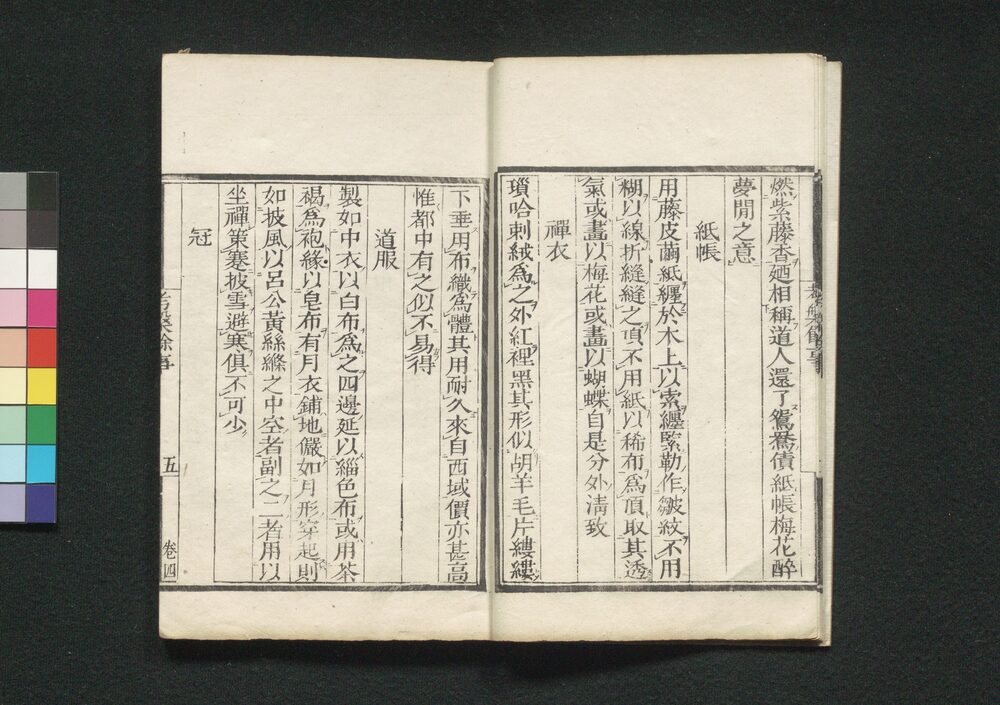 燃紫藤香廼相稱道人還了鴛鴦債紙帳梅花醉
夢閒之意
紙帳
用藤皮繭紙纏於木上以索纏緊勒作皺紋不用
糊以線折縫縫之頂不用紙以稀布為頂取其透
氣或畫以梅花或畫以蝴蝶自是分外淸致
禪衣
瑣哈剌絨為之外紅裡黑其形似胡羊毛片縷縷
下垂用布織為體其用耐久來自西域價亦甚高
惟都中有之似不易得
道服
製如中衣以白布為之四邊延以緇色布或用茶
褐為袍緣以皂布有月衣鋪地儼如月形穿起則
如披風以呂公黃絲絛之中空者副之二者用以
坐禪策蹇披雪避寒俱不可少
冠
五
卷四